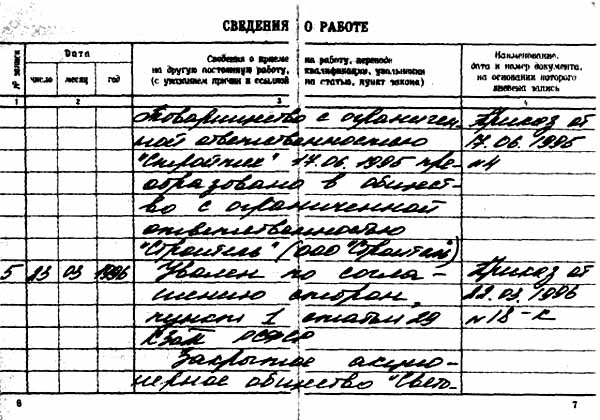 СВЕДЕНИЯ О РАБОТЕ
№ записи
Дата
число
месяц
год
Сведения о приеме на работу, переводе
на другую постоянную работу, квалификации, увольнении
(с указанием причин и ссылкой на статью, пункт закона)
Наименование,
дата и номер документа,
на основании которого
внесена запись
1
2
3
4
Товарищество с ограничен-
ной ответственностью
"Стройтех" 17.06.1995 пре-
образовано в общест-
во с ограниченной
ответственностью
"Строитель" (ООО "Строитель")
Приказ от
17.06.1995
№4
5 23 03 1996 Уволен по согла-
шению сторон,
пункт 1 статьи 29
КЗоТ РСФСР
Приказ от
22.03.1996
№18-к
Закрытое акцио-
нерное общество "Свето-
6
7